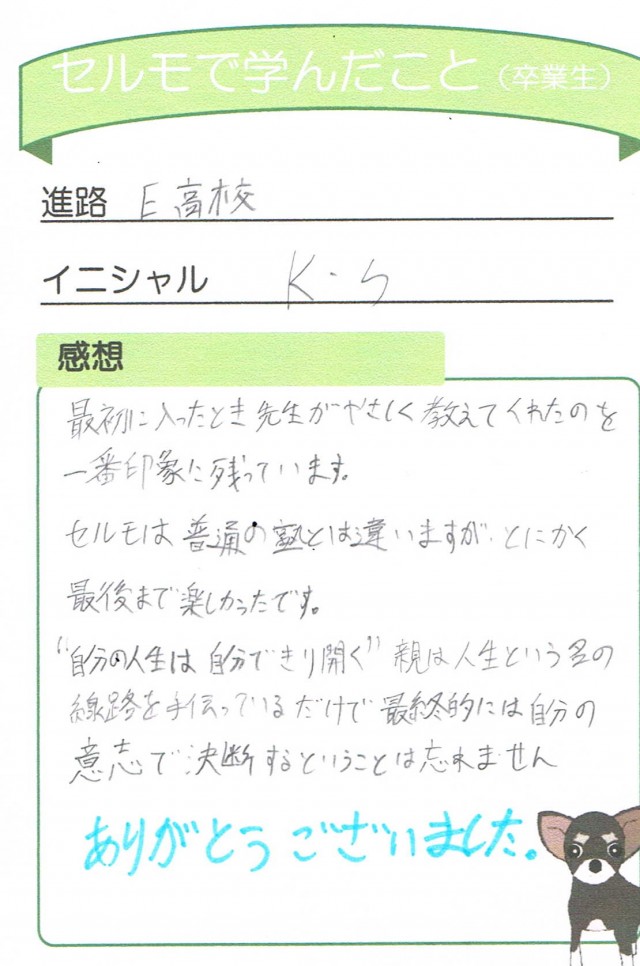 セルモで学んだこと（卒業生）
進路 E高校
イニシャル K・S
感想
最初に入ったとき先生がやさしく教えてくれたのを
一番印象に残っています。
セルモは普通の塾とは違いますが、とにかく
最後まで楽しかったです。
"自分の人生は自分できり開く" 親は人生という名の
線路を手伝っているだけで最終的には自分の
意志で決断するということは忘れません
ありがとうございました。